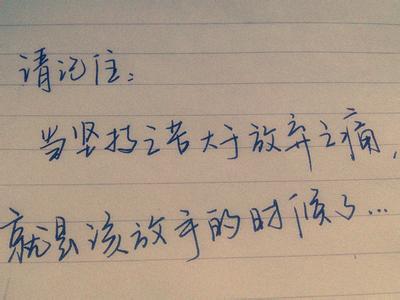 请记住：
当坚持之苦大于放弃之痛，
就是该放手的时候了...